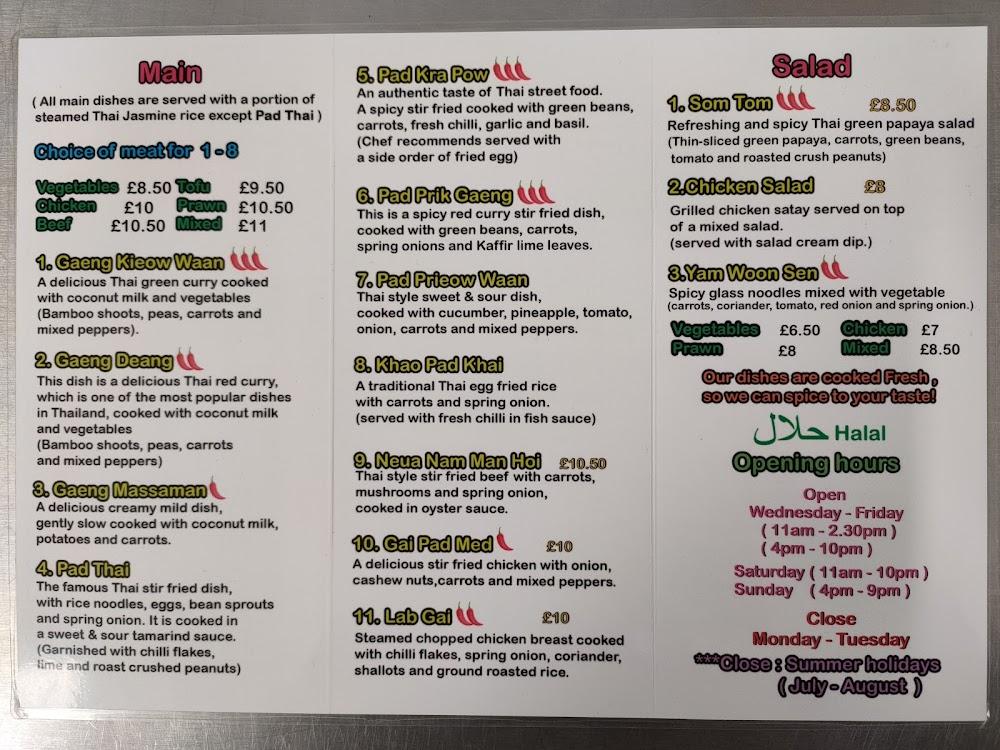 Main
( All main dishes are served with a portion of
steamed Thai Jasmine rice except Pad Thai )
Choice of meat for 1 - 8
Vegetables £8.50 Tofu £9.50
Chicken £10 Prawn £10.50
Beef £10.50 Mixed £11
1. Gaeng Kieow Waan
A delicious Thai green curry cooked
with coconut milk and vegetables
(Bamboo shoots, peas, carrots and
mixed peppers).
2. Gaeng Deang
This dish is a delicious Thai red curry,
which is one of the most popular dishes
in Thailand, cooked with coconut milk
and vegetables
(Bamboo shoots, peas, carrots
and mixed peppers)
3. Gaeng Massaman
A delicious creamy mild dish,
gently slow cooked with coconut milk,
potatoes and carrots.
4. Pad Thai
The famous Thai stir fried dish,
with rice noodles, eggs, bean sprouts
and spring onion. It is cooked in
a sweet & sour tamarind sauce.
(Garnished with chilli flakes,
lime and roast crushed peanuts)
5. Pad Kra Pow
An authentic taste of Thai street food.
A spicy stir fried cooked with green beans,
carrots, fresh chilli, garlic and basil.
(Chef recommends served with
a side order of fried egg)
6. Pad Prik Gaeng
This is a spicy red curry stir fried dish,
cooked with green beans, carrots,
spring onions and Kaffir lime leaves.
7. Pad Prieow Waan
Thai style sweet & sour dish,
cooked with cucumber, pineapple, tomato,
onion, carrots and mixed peppers.
8. Khao Pad Khai
A traditional Thai egg fried rice
with carrots and spring onion.
(served with fresh chilli in fish sauce)
9. Neua Nam Man Hoi £10.50
Thai style stir fried beef with carrots,
mushrooms and spring onion,
cooked in oyster sauce.
10. Gai Pad Med £10
A delicious stir fried chicken with onion,
cashew nuts,carrots and mixed peppers.
11. Lab Gai £10
Steamed chopped chicken breast cooked
with chilli flakes, spring onion, coriander,
shallots and ground roasted rice.
Salad
1. Som Tom £8.50
Refreshing and spicy Thai green papaya salad
(Thin-sliced green papaya, carrots, green beans,
tomato and roasted crush peanuts)
2.Chicken Salad £8
Grilled chicken satay served on top
of a mixed salad.
(served with salad cream dip.)
3.Yam Woon Sen
Spicy glass noodles mixed with vegetable
(carrots, coriander, tomato, red onion and spring onion.)
Vegetables £6.50 Chicken £7
Prawn £8 Mixed £8.50
Our dishes are cooked Fresh ,
so we can spice to your taste!
حلال Halal
Opening hours
Open
Wednesday - Friday
( 11am - 2.30pm )
( 4pm - 10pm )
Saturday ( 11am - 10pm )
Sunday ( 4pm - 9pm )
Close
Monday - Tuesday
***Close : Summer holidays
( July - August )